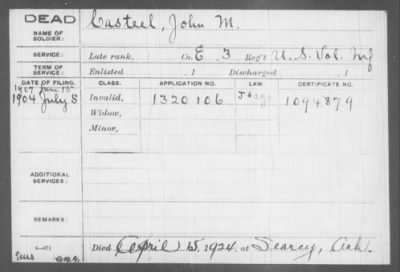 DEAD Casteel, John M.
NAME OF SOLDIER:
SERVICE: Late rank, Co. E, 3 Reg't U.S. Vol. Inf
TERM OF SERVICE: Enlisted , 1 Discharged , 1
DATE OF FILING. CLASS. APPLICATION NO. LAW. CERTIFICATE NO.
1907 June 15
1904 July 5 Invalid, 1320106 1094879
Widow,
Minor,
ADDITIONAL SERVICES:
REMARKS:
Died April 15, 1924, at Searcy, Ark.